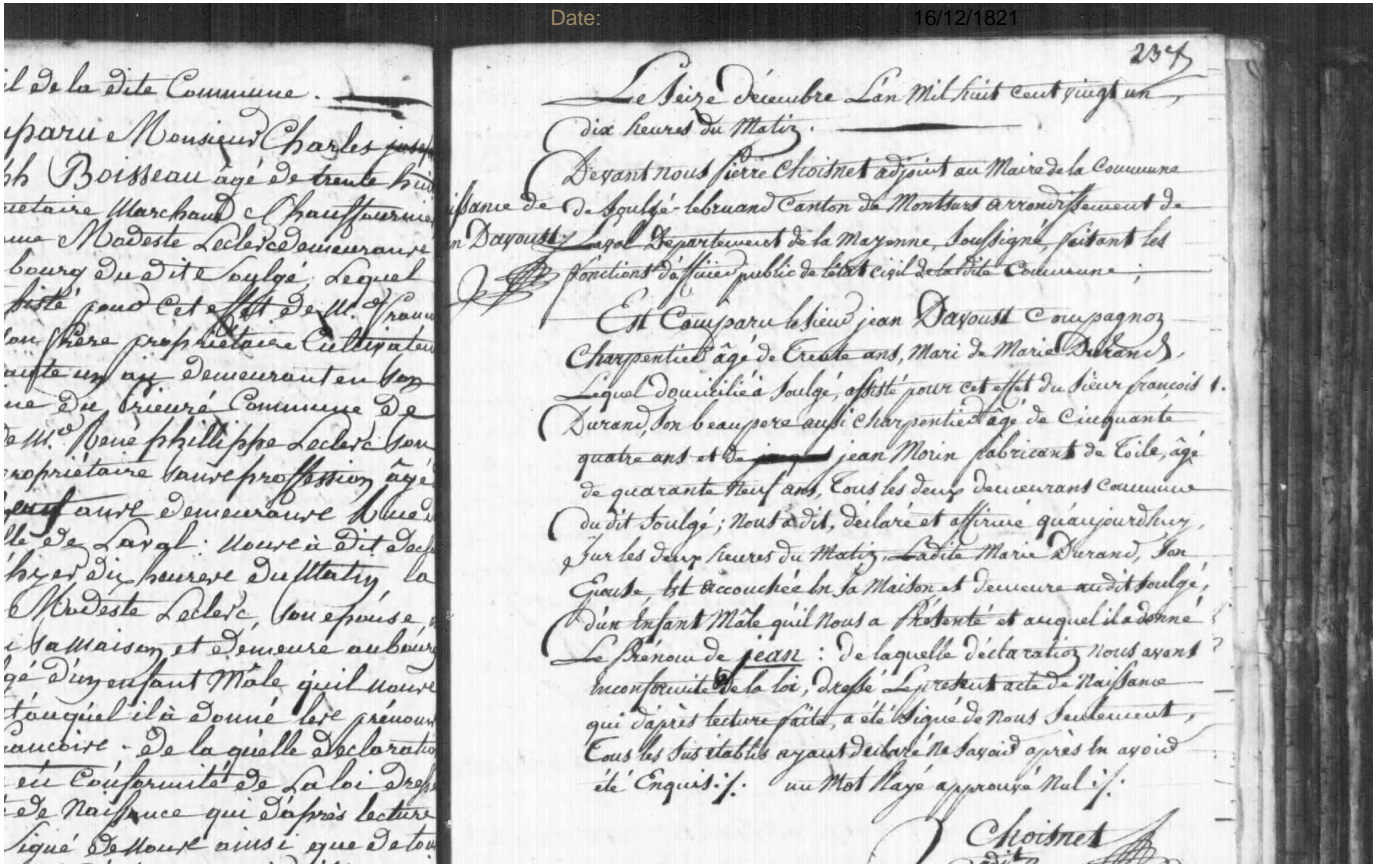 Date: 16/12/1821
il de la dite Commune.
mparu Monsieur Charles
ph Boisseau agé de trente huit
Marchand Chauffournier
Modeste Leclerc demeurant
bourg du dit Soulgé, Lequel
sisté pour cet effet de M.
son frère propriétaire Cultivateur
demeurant en son
du Prieuré Commune de
de M. René phillippe Leclerc son
propriétaire sans proffession âgé
ans demeurant
lle de Laval. nous à dit
hyer dix heures du Matin la
Modeste Leclerc, son epouse
sa maison et demeure au bourg
gé d'un enfant Mâle qu'il nous
auquel il à donné les prénoms
de la quelle declaration
en conformité de La loi
de Naissance qui d'après lecture
signé de nous ainsi que de
23
Le Seize décembre L'an Mil huit cent vingt un
dix heures du Matin.
Devant nous pierre Choisnet adjoint au Maire de la Commune
de Soulgé-lebruand Canton de Montsurs arrondissement de
Laval Département de la Mayenne, Soussigné, faisant les
fonctions d'officier public de l'état civil de la dite Commune;
issance de
n Davoust
Est Comparu le sieur jean Davoust Compagnon
Charpentier âgé de Trente ans, Mari de Marie Durand,
Lequel domicilié à Soulgé, assisté pour cet effet du Sieur françois
Durand, Son beaupere aussi Charpentier âgé de Cinquante
quatre ans et de jean Morin fabricant de Toile, âgé
de quarante Neuf ans, Tous les deux demeurans commune
du dit Soulgé; Nous a dit, declaré et affirmé qu'aujourdhuy,
Sur les deux heures du Matin, Ladite Marie Durand, Son
Epouse Est accouchée En Sa Maison et demeure audit Soulgé,
d'un Enfant Mâle qu'il Nous a Présenté et auquel il a donné
Le Prénom de jean : de laquelle déclaration Nous avons
inconformité de la loi, dressé Le present acte de Naissance
qui d'après lecture faite, a été Signé de Nous Seulement,
Tous les Sus établis ayant declaré Ne Savoir après En avoir
été Enquis ./. un Mot Rayé approuvé Nul ./.
Choisnet
adjt